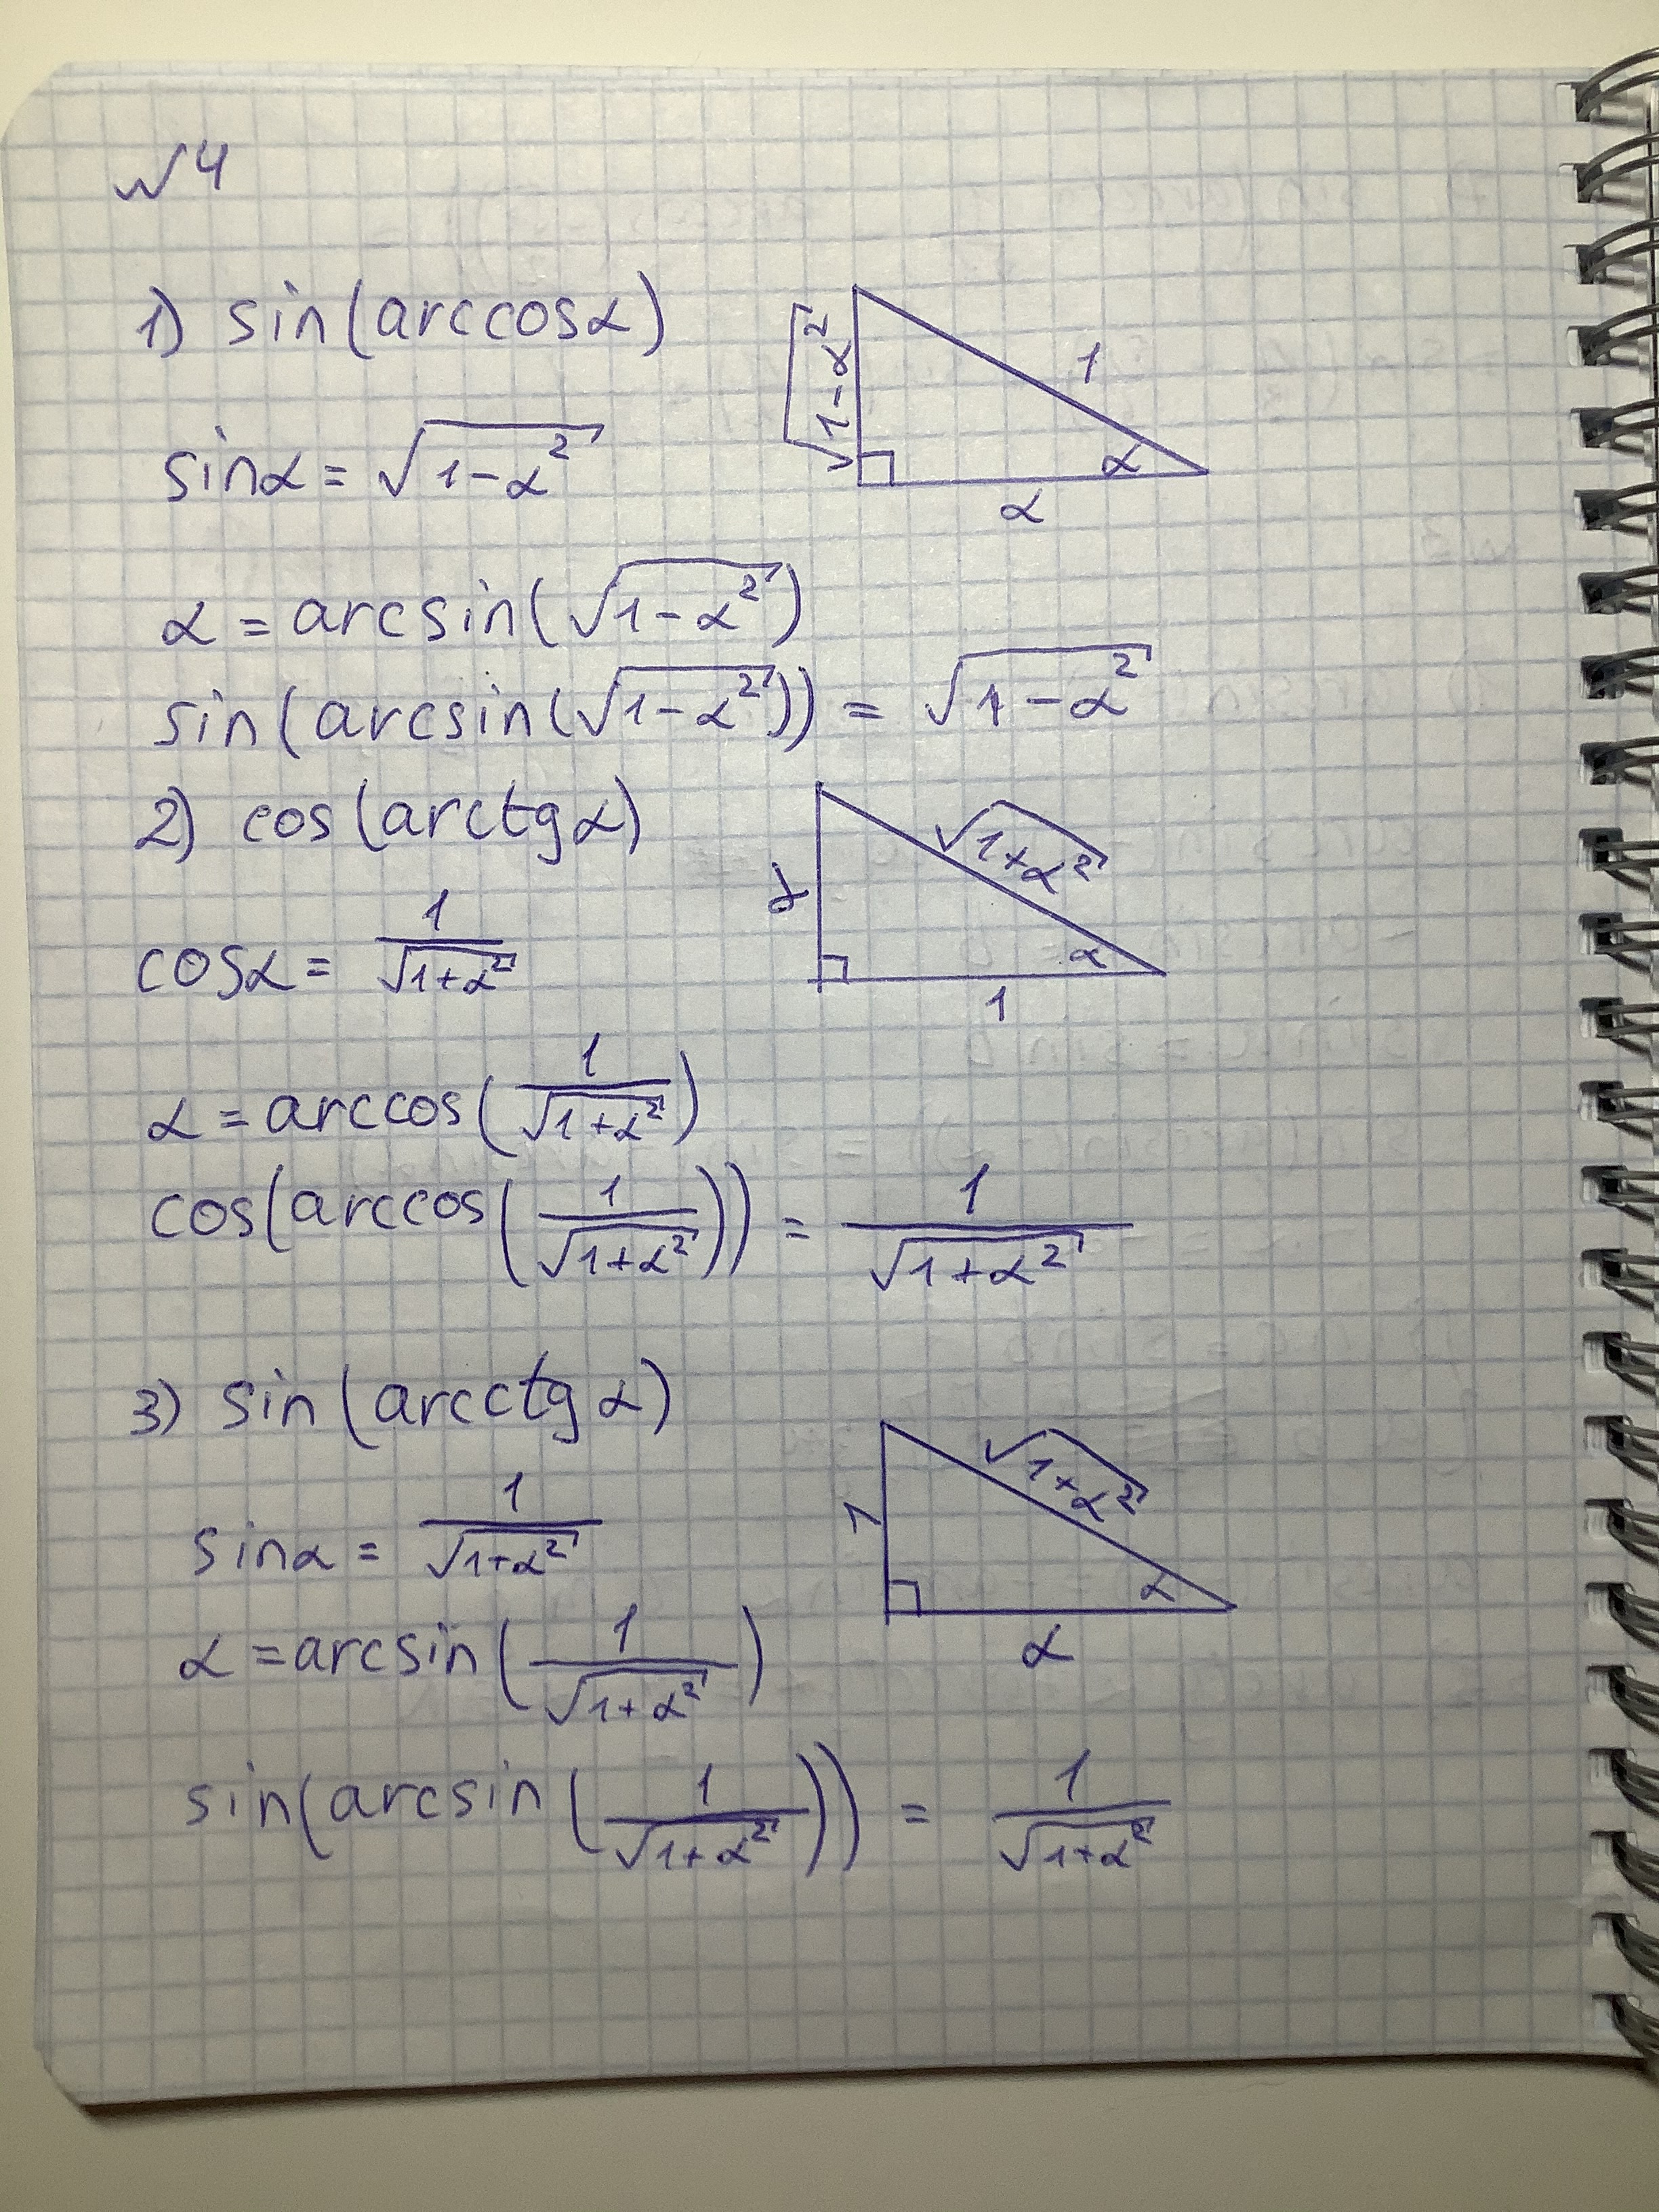 №4
1) sin(arccosα)
√(1-α²)
1
α
α
sinα = √(1-α²)
α = arcsin(√(1-α²))
sin(arcsin(√(1-α²))) = √(1-α²)
2) cos(arctgα)
√(1+α²)
α
α
1
cosα = 1/√(1+α²)
α = arccos(1/√(1+α²))
cos(arccos(1/√(1+α²))) = 1/√(1+α²)
3) sin(arcctgα)
√(1+α²)
1
α
α
sinα = 1/√(1+α²)
α = arcsin(1/√(1+α²))
sin(arcsin(1/√(1+α²))) = 1/√(1+α²)